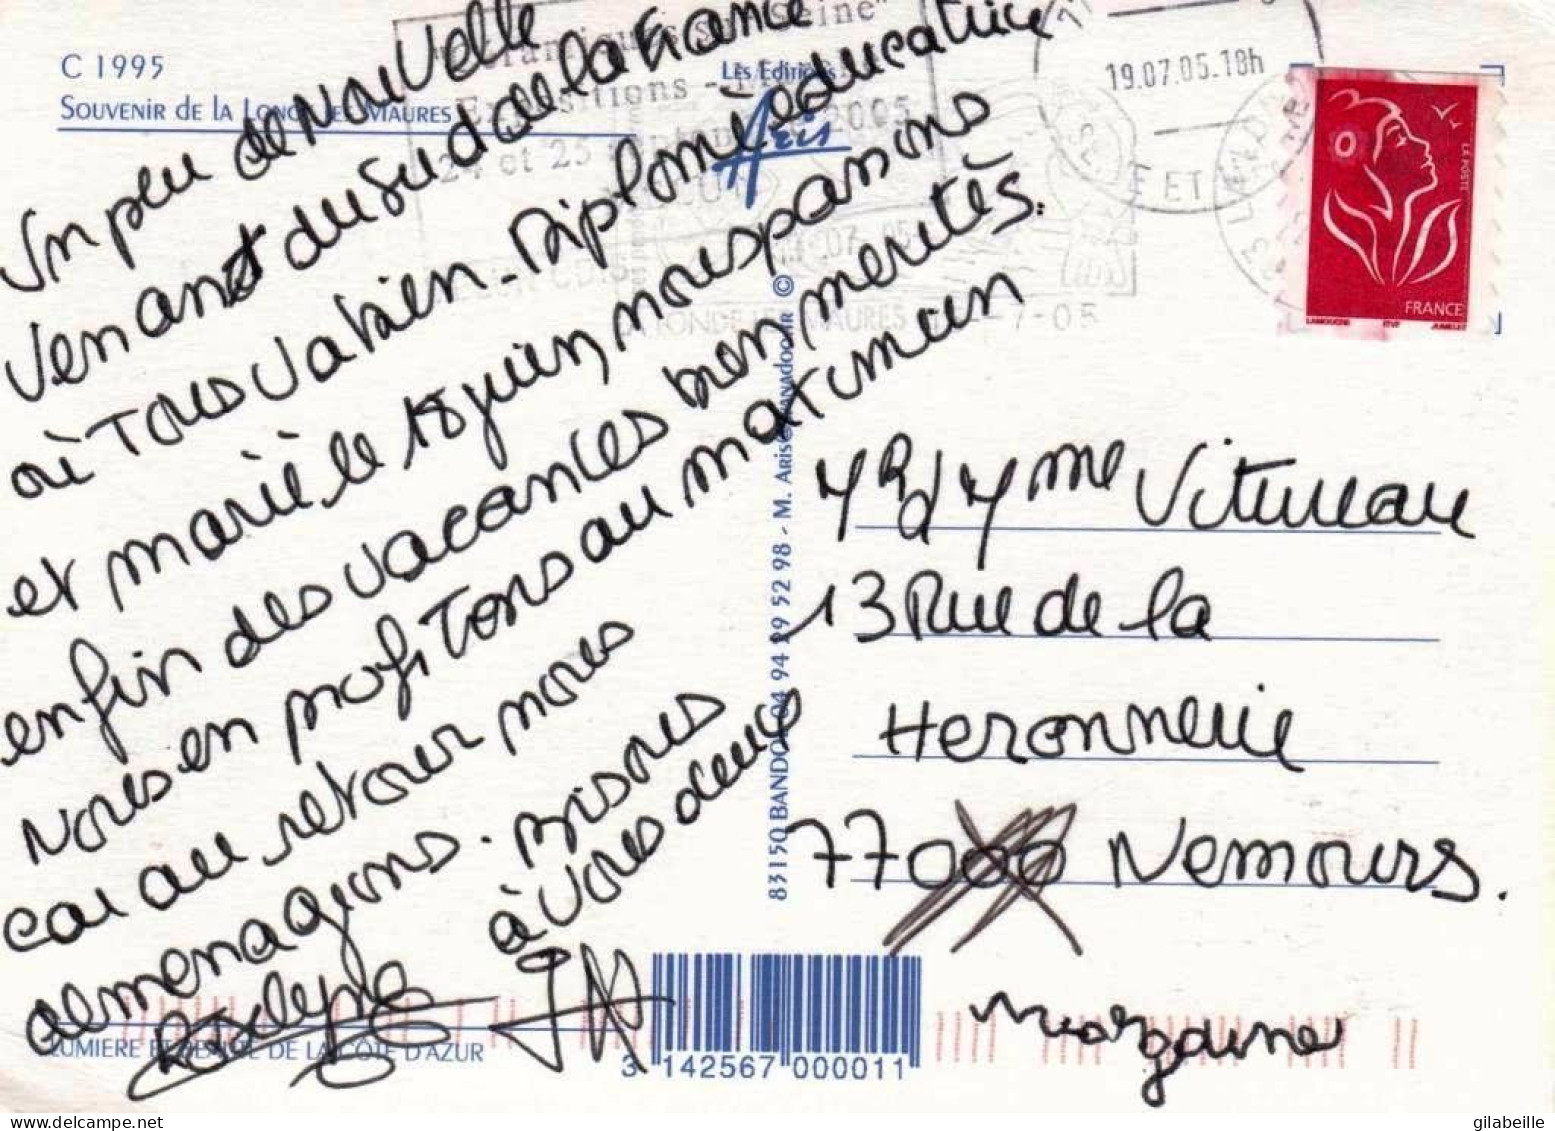 C 1995
SOUVENIR DE LA LONDE LES MAURES
Les Editions
Aris
sur Seine"
Expositions -
24 et 25 2005
19.07.05.18h
LA LONDE LES MAURES
-7-05
LA POSTE
FRANCE
LAMOUCHE ITVF JUMELET
Un peu de nouvelle
venant du Sud de la France
où Tous va bien. Diplomé educatrice
et marié le 18 juin, nous pasons
enfin des vacances bien merités.
Nous en profitons au maximum
car au retour nous
demenageons. Bisous
à vous deux
Mr d Mme Vitureau
13 Rue de la
Heronnerie
77000 Nemours.
Morgane
83150 BANDOL 04 94 29 52 98 - M. ARIS
LUMIERE ET BEAUTE DE LA CÔTE D'AZUR
3 142567 000011
gilabeille